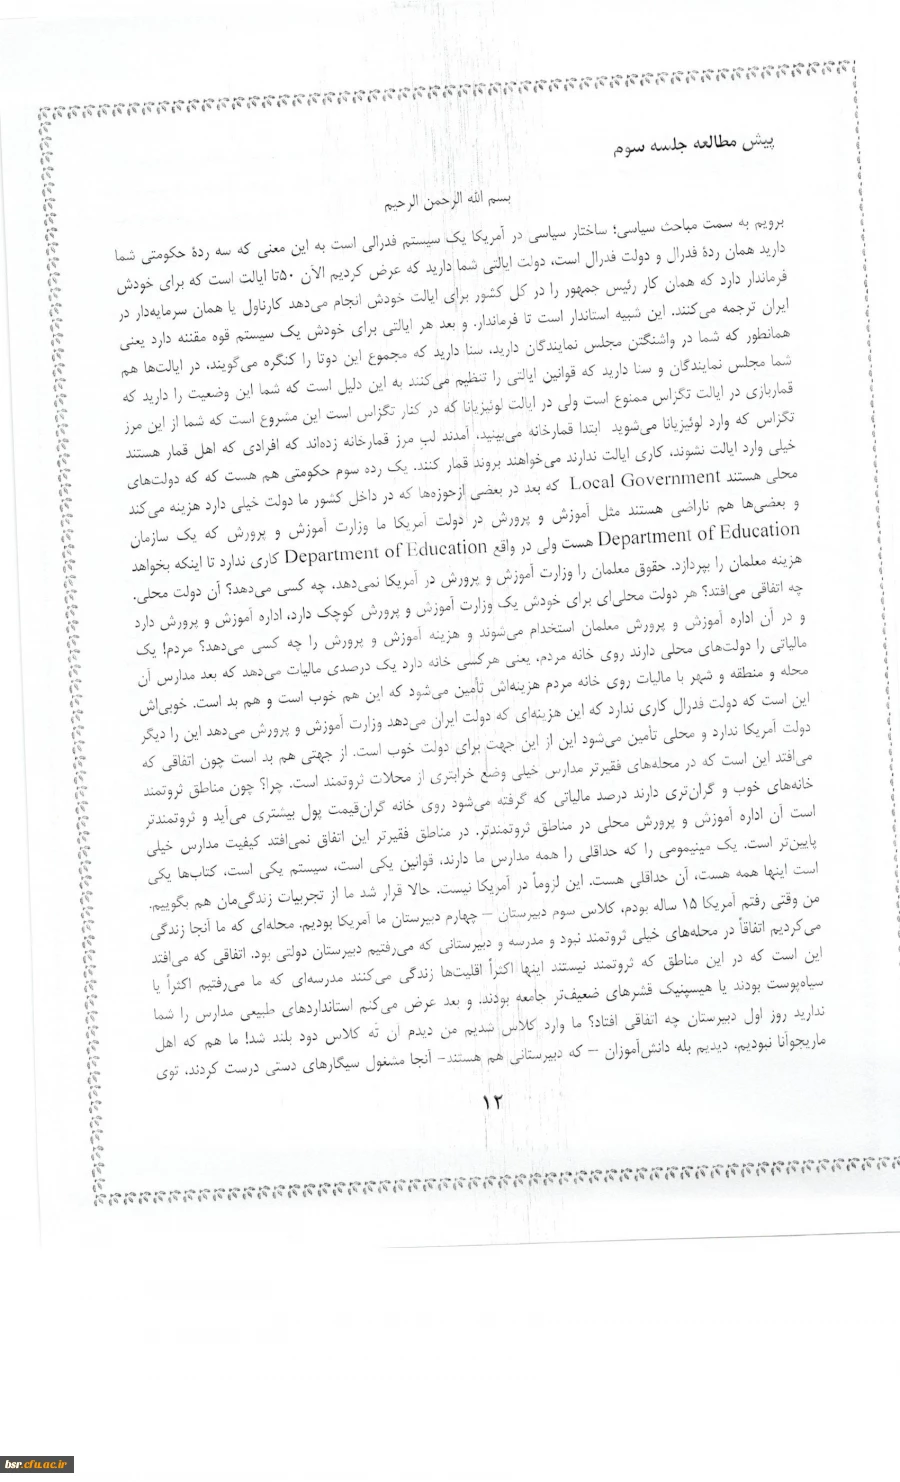 پیش مطالعه جلسه سوم
بسم الله الرحمن الرحیم
برویم به سمت مباحث سیاسی؛ ساختار سیاسی در آمریکا یک سیستم فدرالی است به این معنی که سه ردهٔ حکومتی شما
دارید همان ردهٔ فدرال و دولت فدرال است، دولت ایالتی شما دارید که عرض کردیم الآن ۵۰تا ایالت است که برای خودش
فرماندار دارد که همان کار رئیس جمهور را در کل کشور برای ایالت خودش انجام می‌دهد کارناول یا همان سرمایه‌دار در
ایران ترجمه می‌کنند. این شبیه استاندار است تا فرماندار. و بعد هر ایالتی برای خودش یک سیستم قوه مقننه دارد یعنی
همانطور که شما در واشنگتن مجلس نمایندگان دارید، سنا دارید که مجموع این دوتا را کنگره می‌گویند، در ایالت‌ها هم
شما مجلس نمایندگان و سنا دارید که قوانین ایالتی را تنظیم می‌کنند به این دلیل است که شما این وضعیت را دارید که
قماربازی در ایالت تگزاس ممنوع است ولی در ایالت لوئیزیانا که در کنار تگزاس است این مشروع است که شما از این مرز
تگزاس که وارد لوئیزیانا می‌شوید ابتدا قمارخانه می‌بینید، آمدند لب مرز قمارخانه زده‌اند که افرادی که اهل قمار هستند
خیلی وارد ایالت نشوند، کاری ایالت ندارند می‌خواهند بروند قمار کنند. یک رده سوم حکومتی هم هست که که دولت‌های
محلی هستند Local Government که بعد در بعضی ازحوزه‌ها که در داخل کشور ما دولت خیلی دارد هزینه می‌کند
و بعضی‌ها هم ناراضی هستند مثل آموزش و پرورش در دولت آمریکا ما وزارت آموزش و پرورش که یک سازمان
Department of Education هست ولی در واقع Department of Education کاری ندارد تا اینکه بخواهد
هزینه معلمان را بپردازد. حقوق معلمان را وزارت آموزش و پرورش در آمریکا نمی‌دهد، چه کسی می‌دهد؟ آن دولت محلی.
چه اتفاقی می‌افتد؟ هر دولت محلی‌ای برای خودش یک وزارت آموزش و پرورش کوچک دارد، اداره آموزش و پرورش دارد
و در آن اداره آموزش و پرورش معلمان استخدام می‌شوند و هزینه آموزش و پرورش را چه کسی می‌دهد؟ مردم! یک
مالیاتی را دولت‌های محلی دارند روی خانه مردم، یعنی هرکسی خانه دارد یک درصدی مالیات می‌دهد که بعد مدارس آن
محله و منطقه و شهر با مالیات روی خانه مردم هزینه‌اش تأمین می‌شود که این هم خوب است و هم بد است. خوبی‌اش
این است که دولت فدرال کاری ندارد که این هزینه‌ای که دولت ایران می‌دهد وزارت آموزش و پرورش می‌دهد این را دیگر
دولت آمریکا ندارد و محلی تأمین می‌شود این از این جهت برای دولت خوب است. از جهتی هم بد است چون اتفاقی که
می‌افتد این است که در محله‌های فقیرتر مدارس خیلی وضع خرابتری از محلات ثروتمند است. چرا؟ چون مناطق ثروتمند
خانه‌های خوب و گران‌تری دارند درصد مالیاتی که گرفته می‌شود روی خانه گران‌قیمت پول بیشتری می‌آید و ثروتمندتر
است آن اداره آموزش و پرورش محلی در مناطق ثروتمندتر. در مناطق فقیرتر این اتفاق نمی‌افتد کیفیت مدارس خیلی
پایین‌تر است. یک مینیمومی را که حداقلی را همه مدارس ما دارند، قوانین یکی است، سیستم یکی است، کتاب‌ها یکی
است اینها همه هست، آن حداقلی هست. این لزوماً در آمریکا نیست. حالا قرار شد ما از تجربیات زندگی‌مان هم بگوییم.
من وقتی رفتم آمریکا ۱۵ ساله بودم، کلاس سوم دبیرستان – چهارم دبیرستان ما آمریکا بودیم. محله‌ای که ما آنجا زندگی
می‌کردیم اتفاقاً در محله‌های خیلی ثروتمند نبود و مدرسه و دبیرستانی که می‌رفتیم دبیرستان دولتی بود. اتفاقی که می‌افتد
این است که در این مناطق که ثروتمند نیستند اینها اکثراً اقلیت‌ها زندگی می‌کنند مدرسه‌ای که ما می‌رفتیم اکثراً یا
سیاه‌پوست بودند یا هیسپنیک قشرهای ضعیف‌تر جامعه بودند. و بعد عرض می‌کنم استانداردهای طبیعی مدارس را شما
ندارید روز اول دبیرستان چه اتفاقی افتاد؟ ما وارد کلاس شدیم من دیدم آن ته کلاس دود بلند شد! ما هم که اهل
ماریجوآنا نبودیم، دیدیم بله دانش‌آموزان – که دبیرستانی هم هستند- آنجا مشغول سیگارهای دستی درست کردند، توی
۱۲
bsr.cfu.ac.ir